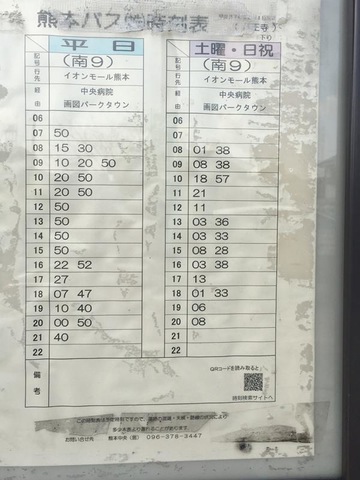 熊本バス 時刻表
正寺）
下り
平日
記号 （南9）
行先 イオンモール熊本
経由 中央病院
画図パークタウン
06
07 50
08 15 30
09 10 20 50
10 20 50
11 20 50
12 50
13 50
14 50
15 50
16 22 52
17 27
18 07 47
19 10 40
20 00 50
21 40
22
備考
土曜・日祝
記号 （南9）
行先 イオンモール熊本
経由 中央病院
画図パークタウン
06
07
08 01 38
09 08 38
10 18 57
11 21
12 11
13 03 36
14 03 33
15 08 28
16 03 38
17 13
18 01 33
19 06
20 08
21
22
QRコードを読み取ると
時刻検索サイトへ
お問い合せ先 熊本中央（営） 096-378-3447